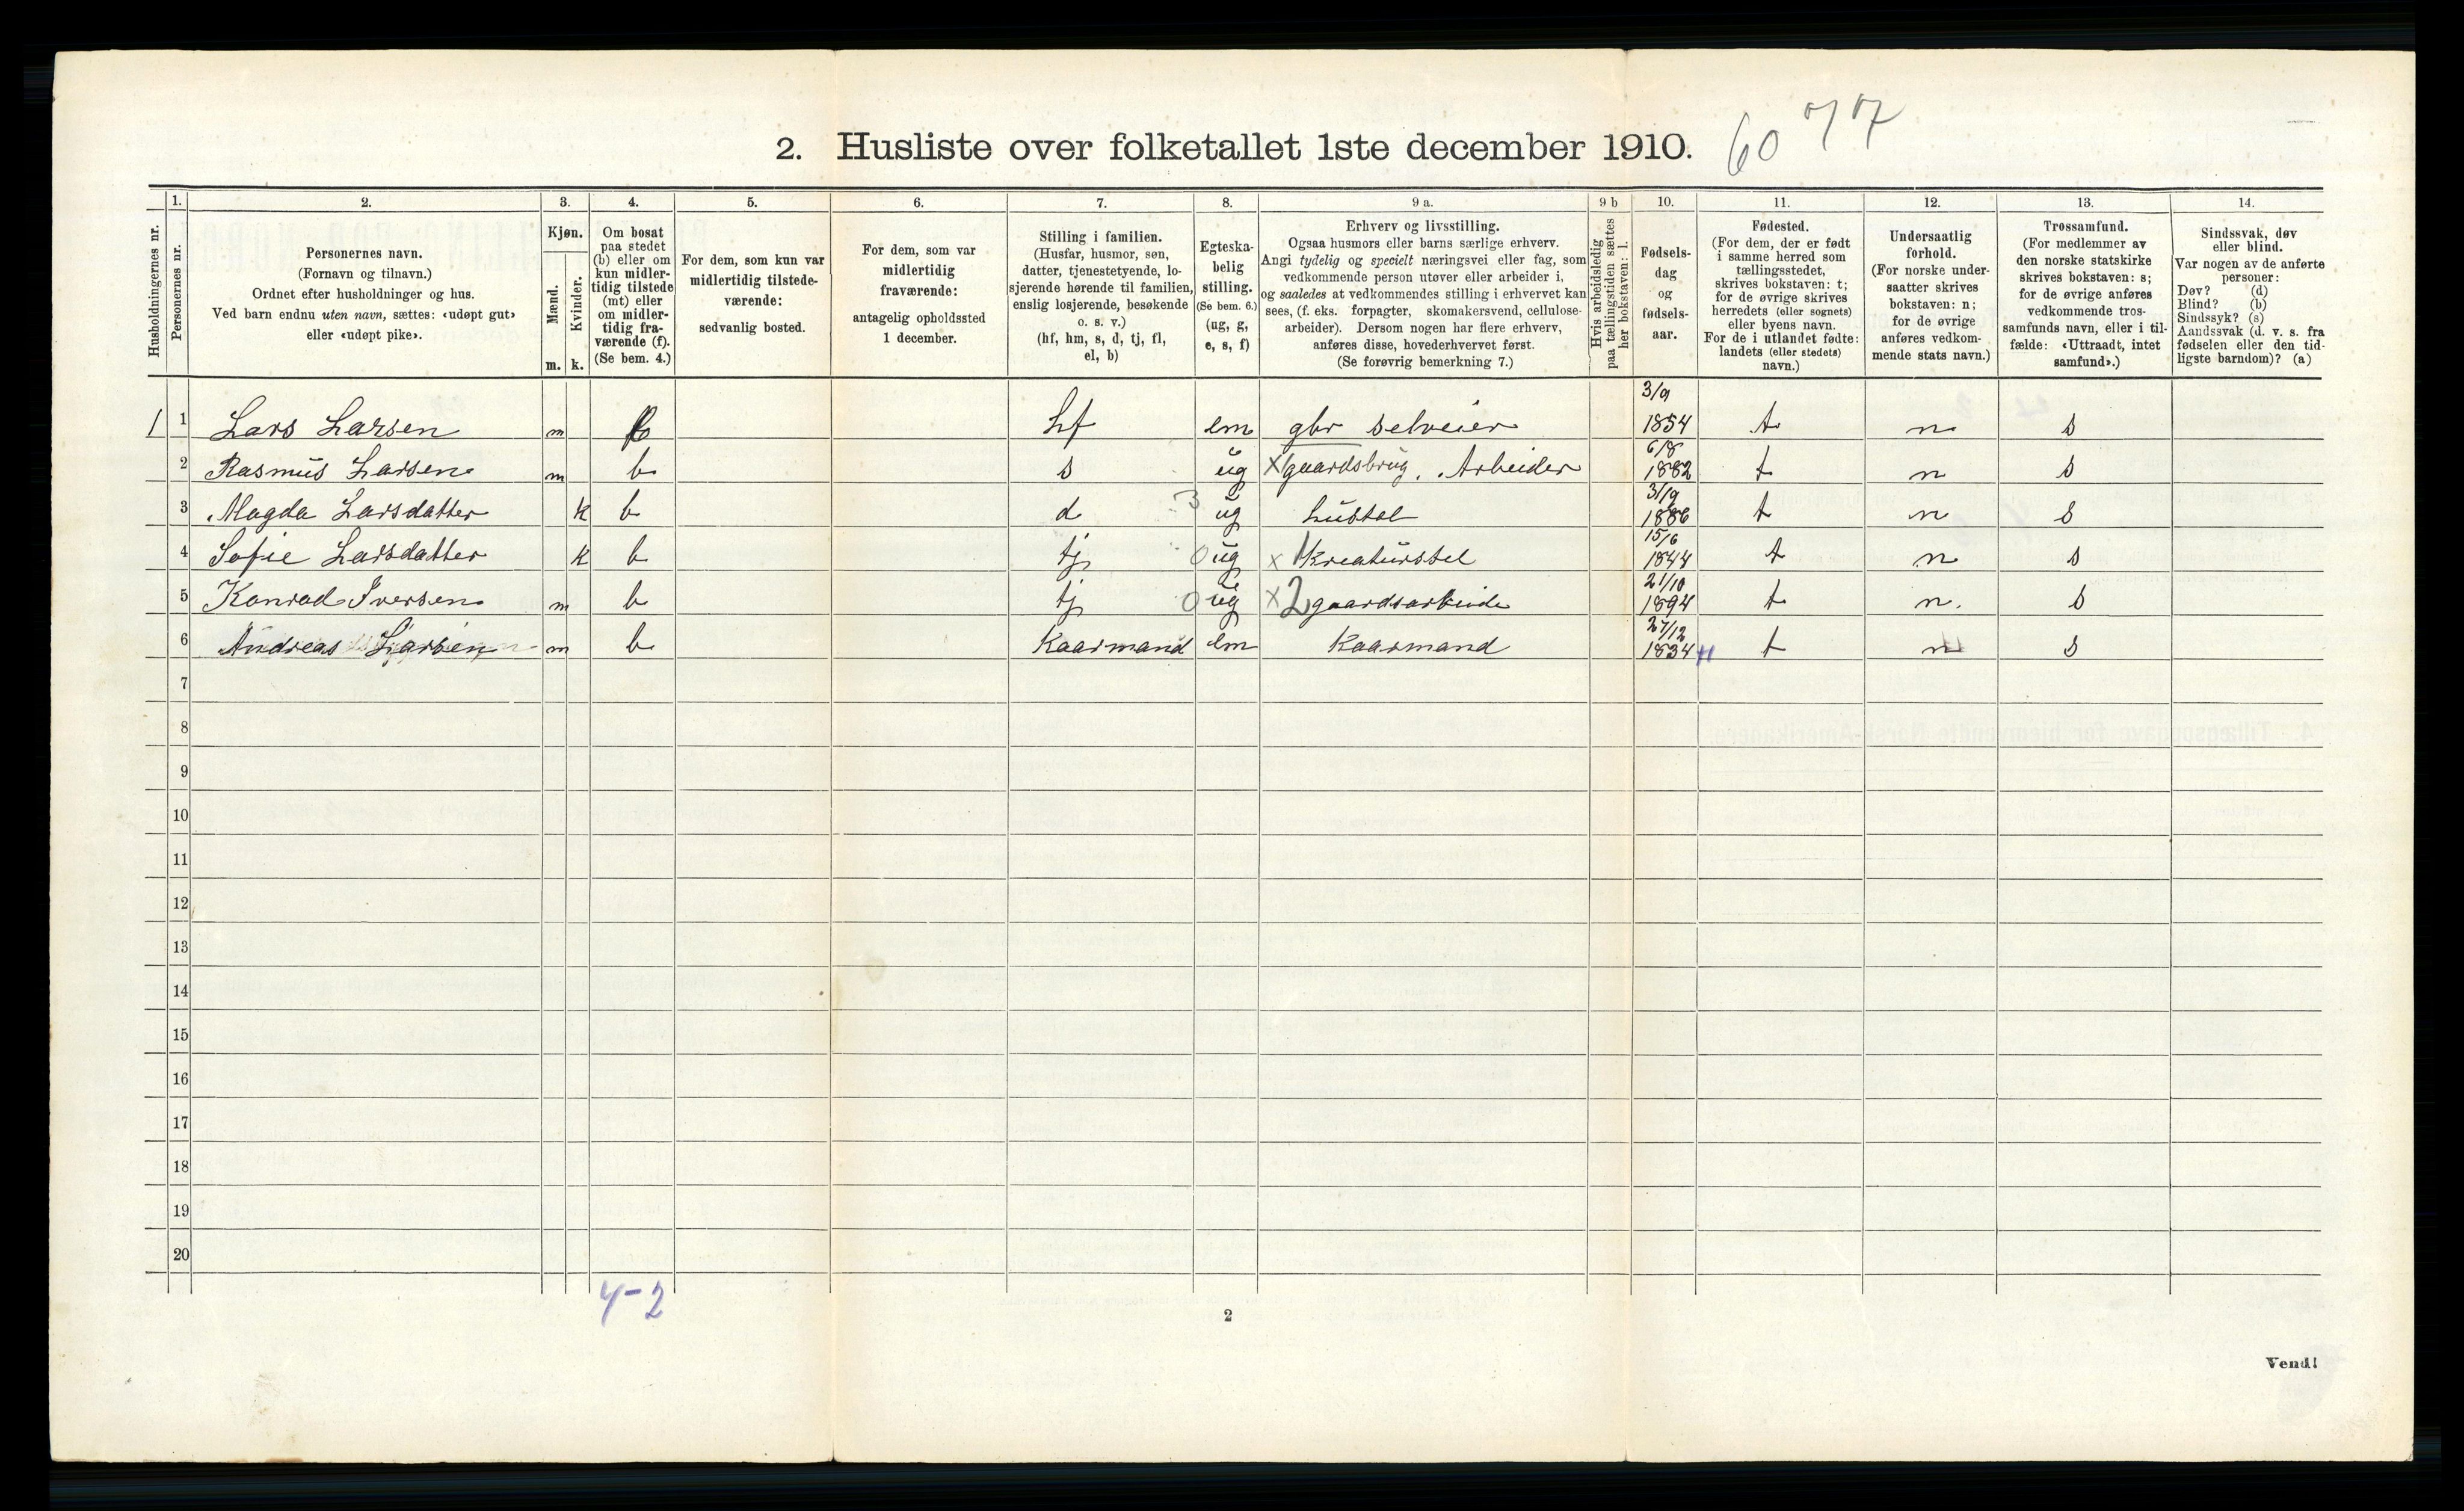 2. Husliste over folketallet 1ste december 1910.
60 77
1. 2. 3. 4. 5. 6. 7. 8. 9 a. 9 b 10. 11. 12. 13. 14.
Husholdningernes nr.
Personernes nr.
Personernes navn.
(Fornavn og tilnavn.)
Ordnet efter husholdninger og hus.
Ved barn endnu uten navn, sættes: «udøpt gut»
eller «udøpt pike».
Kjøn.
Mænd.
Kvinder.
m. k.
Om bosat
paa stedet
(b) eller om
kun midler-
tidig tilstede
(mt) eller
om midler-
tidig fra-
værende (f).
(Se bem. 4.)
For dem, som kun var
midlertidig tilstede-
værende:
sedvanlig bosted.
For dem, som var
midlertidig
fraværende:
antagelig opholdssted
1 december.
Stilling i familien.
(Husfar, husmor, søn,
datter, tjenestetyende, lo-
sjerende hørende til familien,
enslig losjerende, besøkende
o. s. v.)
(hf, hm, s, d, tj, fl,
el, b)
Egteska-
belig
stilling.
(Se bem. 6.)
(ug, g,
e, s, f)
Erhverv og livsstilling.
Ogsaa husmors eller barns særlige erhverv.
Angi tydelig og specielt næringsvei eller fag, som
vedkommende person utøver eller arbeider i,
og saaledes at vedkommendes stilling i erhvervet kan
sees, (f. eks. forpagter, skomakersvend, cellulose-
arbeider). Dersom nogen har flere erhverv,
anføres disse, hovederhvervet først.
(Se forøvrig bemerkning 7.)
Hvis arbeidsledig
paa tællingstiden sættes
her bokstaven: l.
Fødsels-
dag
og
fødsels-
aar.
Fødested.
(For dem, der er født
i samme herred som
tællingsstedet,
skrives bokstaven: t;
for de øvrige skrives
herredets (eller sognets)
eller byens navn.
For de i utlandet fødte:
landets (eller stedets)
navn.)
Undersaatlig
forhold.
(For norske under-
saatter skrives
bokstaven: n;
for de øvrige
anføres vedkom-
mende stats navn.)
Trossamfund.
(For medlemmer av
den norske statskirke
skrives bokstaven: s;
for de øvrige anføres
vedkommende tros-
samfunds navn, eller i til-
fælde: «Uttraadt, intet
samfund».)
Sindssvak, døv
eller blind.
Var nogen av de anførte
personer:
Døv? (d)
Blind? (b)
Sindssyk? (s)
Aandssvak (d. v. s. fra
fødselen eller den tid-
ligste barndom)? (a)
1 1 Lars Larsen m b hf em gbr selveier 3/9 1854 t n s
2 Rasmus Larsen m b s ug x gaardsbrug. Arbeider 6/8 1882 t n s
3 Magda Larsdatter k b d 3 ug husstel 3/9 1886 t n s
4 Sofie Larsdatter k b tj 0 ug x 1 kreaturstel 15/6 1844 t n s
5 Konrad Iversen m b tj 0 ug x 2 gaardsarbeide 21/10 1894 t n. s
6 Andreas Larsen m b Kaarmand em Kaarmand 27/12 1834 t n s
7
8
9
10
11
12
13
14
15
16
17
18
19
20
4-2
2
Vend!